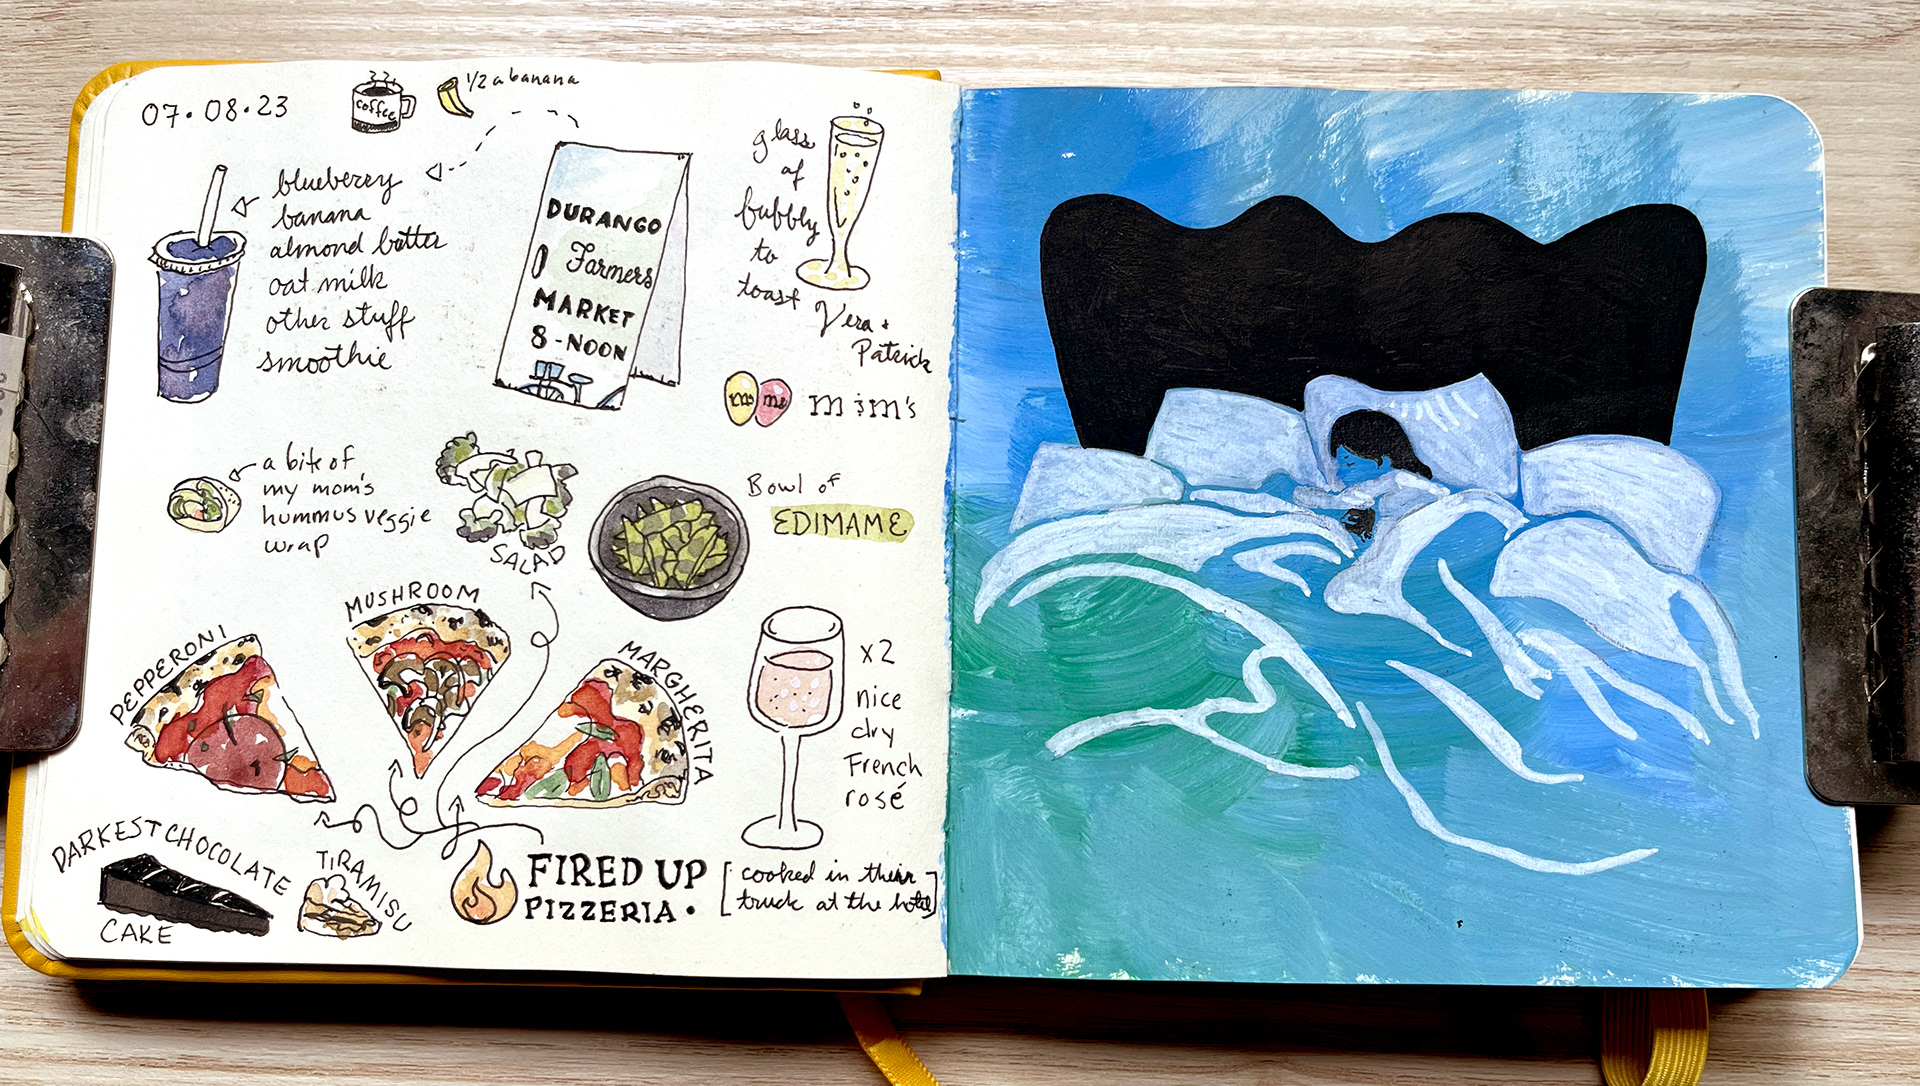 07.08.23
coffee
1/2 a banana
blueberry
banana
almond butter
oat milk
other stuff
smoothie
DURANGO
Farmers
MARKET
8-NOON
glass
of
bubbly
to
toast Vera +
Patrick
m
m
m&m's
a bite of
my mom's
hummus veggie
wrap
SALAD
Bowl of
EDIMAME
PEPPERONI
MUSHROOM
MARGHERITA
x2
nice
dry
French
rosé
DARKEST CHOCOLATE
CAKE
TIRAMISU
FIRED UP
PIZZERIA.
[cooked in their
truck at the hotel]